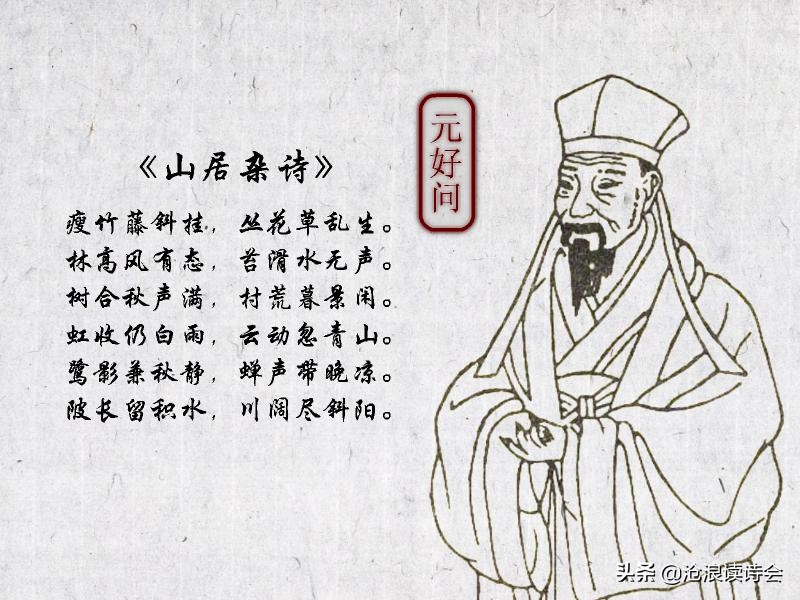 《山居杂诗》
瘦竹藤斜挂，丛花草乱生。
林高风有态，苔滑水无声。
树合秋声满，村荒暮景闲。
虹收仍白雨，云动忽青山。
鹭影兼秋静，蝉声带晚凉。
陂长留积水，川阔尽斜阳。
元好问
头条 @沧浪读诗会